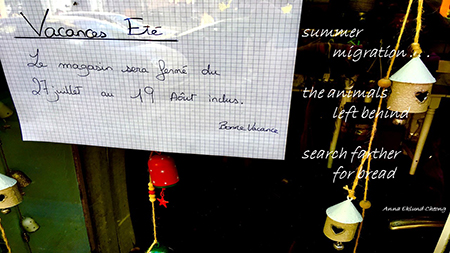 Vacances Eté
Le magasin sera fermé du
27 juillet au 19 Août inclus.
Bonne Vacance
summer
migration . . .
the animals
left behind
search farther
for bread
Anna Eklund-Cheong